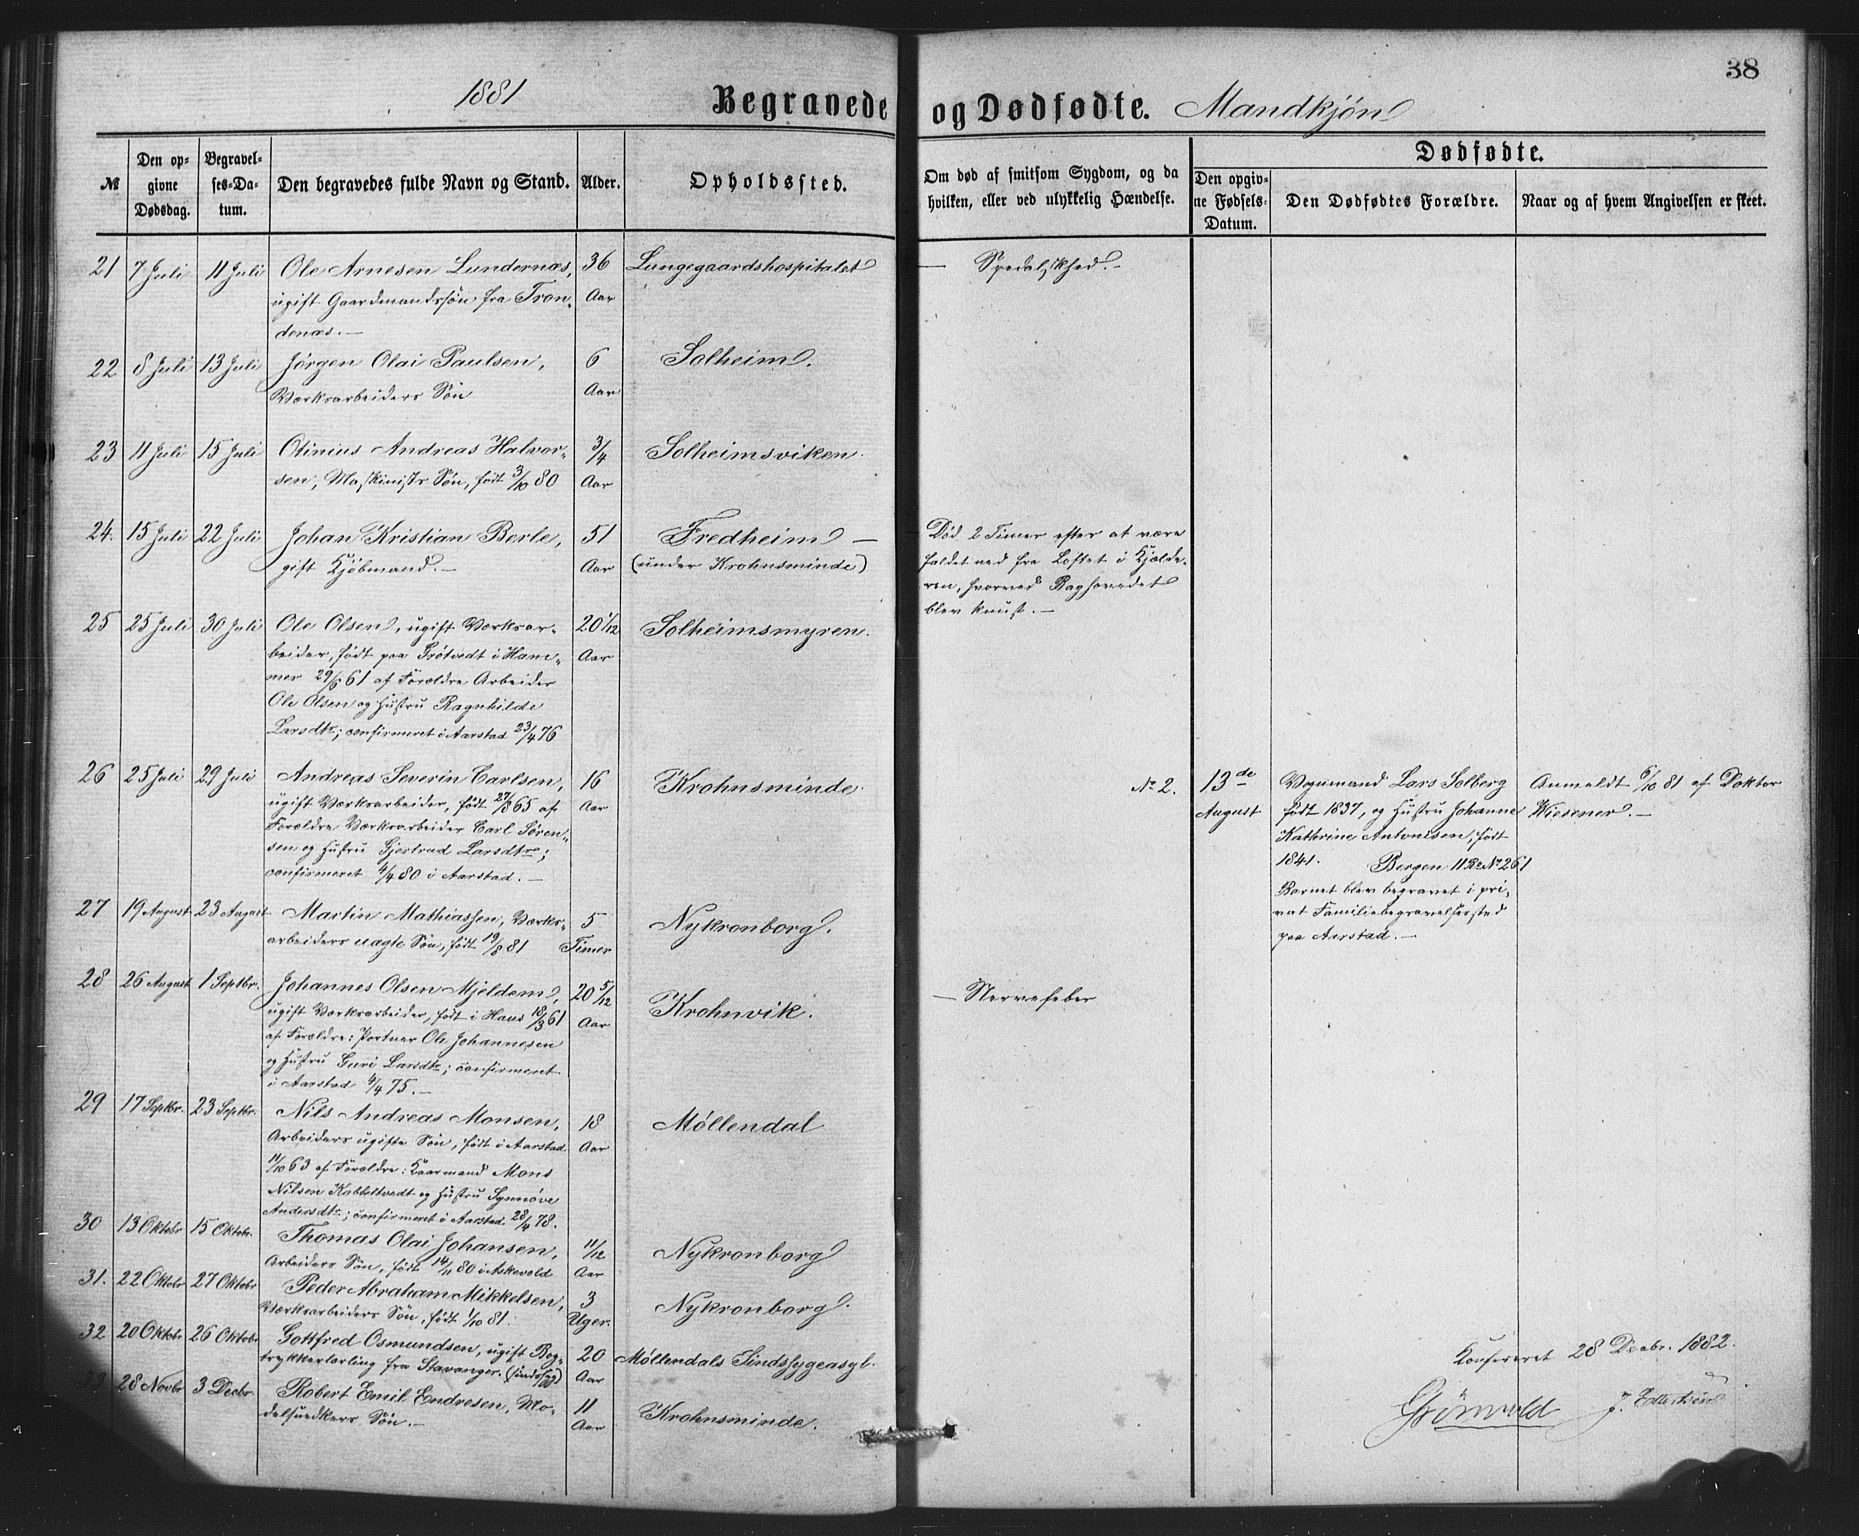 38
1881
Begravede og Dødfødte. Mandkjøn
№
Den opgivne Dødsdag.
Begravelses-Datum.
Den begravedes fulde Navn og Stand.
Alder.
Opholdssted.
Om død af smitsom Sygdom, og da hvilken, eller ved ulykkelig Hændelse.
Dødfødte.
Den opgivne Fødsels-Datum.
Den Dødfødtes Forældre.
Naar og af hvem Angivelsen er skeet.
21 7 Juli 11 Juli Ole Arnesen Lundernæs, 36 Lungegaardshospitalet — Spedalskhed. -
ugift Gaardmandssøn fra Tron- Aar
denæs. —
22 8 Juli 13 Juli Jørgen Olai Paulsen, 6 Solheim.
Værksarbeiders Søn Aar
23 11 Juli 15 Juli Otinius Andreas Halvor- 3/4 Solheimsviken.
sen, Maskinists Søn, født 3/10 80 Aar
24. 15 Juli 22 Juli Johan Kristian Berle, 51 Fredheim — Død 2 Timer efter at være
gift Kjøbmand. — Aar (under Krohnsminde) faldet ned fra Loftet i Kjælde-
ren, hvorved Baghovedet
blev knust. —
25 25 Juli 30 Juli Ole Olsen, ugift Værksar- 20 1/12 Solheimsmyren.
beider, født paa Grøtvedt i Ham- Aar
mer 29/6 61 af Forældre Arbeider
Ole Olsen og Hustru Ragnhilde
Larsdtr; confirmeret i Aarstad 23/4 76
26 25 Juli 29 Juli Andreas Severin Carlsen, 16 Krohnsminde.
ugift Værksarbeider, født 27/8 65 af Aar
Forældre Værksarbeider Carl Søren-
sen og Hustru Gjertrud Larsdtr;
confirmeret 4/4 80 i Aarstad. —
№ 2. 13de Vognmand Lars Solberg Anmeldt 6/10 81 af Doktor
August født 1837, og Hustru Johanne Wiesener. —
Kathrine Antonisen, født
1841. Bergen 11 № 261
Barnet blev begravet i pri-
vat Familiebegravelsessted
paa Aarstad. —
27 19 August 23 August Martin Mathiassen, Værks- 5 Nykronborg.
arbeiders uægte Søn, født 19/8 81 Timer
28 26 August 1 Septbr. Johannes Olsen Mjeldem, 20 5/12 Krohnvik. — Nervefeber
ugift Værksarbeider, født i Haus 18/3 61 Aar
af Forældre: Portner Ole Johannesen
og Hustru Guri Larsdtr; confirmeret
i Aarstad 4/4 75. —
29 17 Septbr. 23 Septbr. Nils Andreas Monsen, 18 Møllendal
Arbeiders ugifte Søn, født i Aarstad Aar
11/10 63 af Forældre: Kaarmand Mons
Nilsen Kobbeltvedt og Hustru Synnøve
Andersdtr; confirmeret i Aarstad 28/4 78.
30 13 Oktobr 15 Oktobr. Thomas Olai Johansen, 11/12 Nykronborg
Arbeiders Søn, født 14/11 80 i Askevold Aar
31. 22 Oktobr 27 Oktobr Peder Abraham Mikkelsen, 3 Nykronborg.
Værksarbeiders Søn, født 1/10 81. Uger.
32 20 Oktobr 26 Oktobr Gottfred Osmundsen, ugift Bog- 20 Møllendals Sindssygeasyl.
trykkerlærling fra Stavanger. (sindssyg) Aar
33 28 Novbr 3 Decbr. Robert Emil Endresen, Mo- 11 Krohnsminde.
delsnedkers Søn. — Aar
Konfereret 28 Decbr. 1882.
Grønvold J.